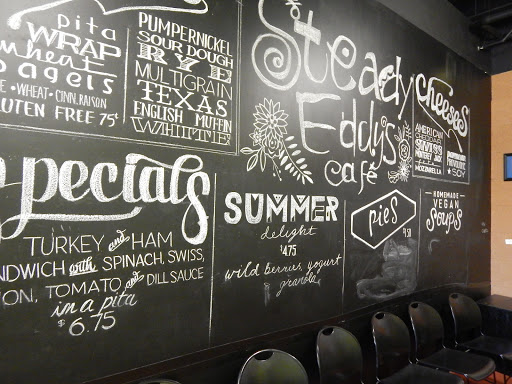 pita
WRAP
wheat
bagels
WHEAT • CINN. RAISON
GLUTEN FREE 75¢
PUMPERNICKEL
SOUR DOUGH
RYE
MULTIGRAIN
TEXAS
ENGLISH MUFFIN
WHITE
Steady
Eddy's
café
cheeses
AMERICAN
SWISS
MONTEREY JACK
MOZZARELLA
PROVOLONE
SOY
Specials
TURKEY and HAM
SANDWICH with SPINACH, SWISS,
TOMATO and DILL SAUCE
in a pita
$6.75
SUMMER
delight
$4.75
wild berries, yogurt
granola
pies
HOMEMADE
VEGAN
Soups